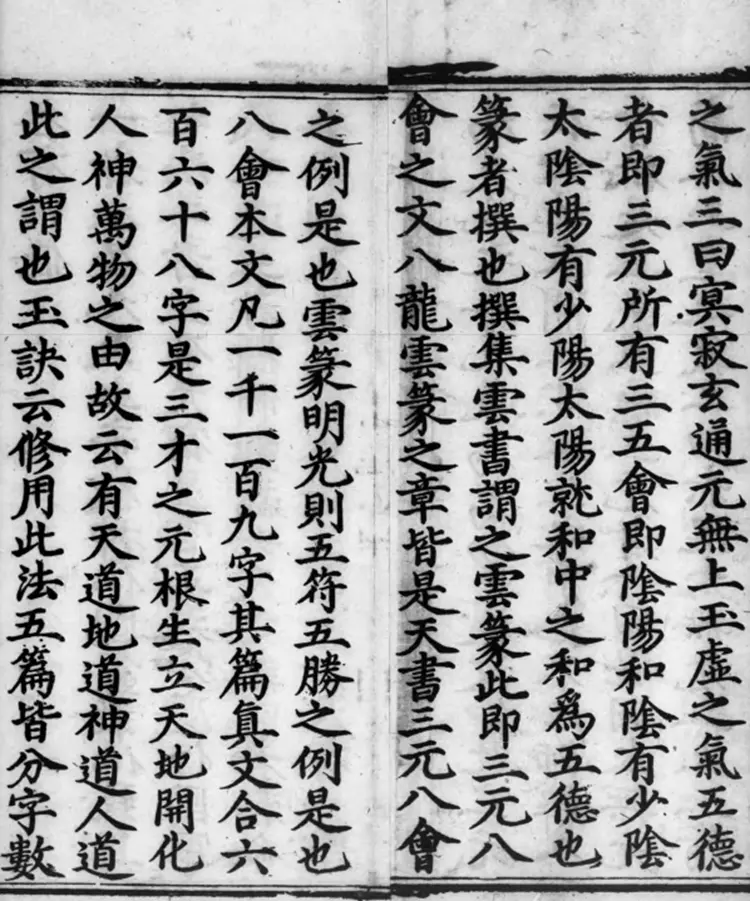 之氣三曰㝠寂玄通元無上玉虛之氣五德
者即三元所有三五會即陰陽和陰有少陰
太陰陽有少陽太陽就和中之和為五德也
篆者撰也撰集雲書謂之雲篆此即三元八
會之文八龍雲篆之章皆是天書三元八會
之例是也雲篆明光則五符五勝之例是也
八會本文凡一千一百九字其篇真文合六
百六十八字是三才之元根生立天地開化
人神萬物之由故云有天道地道神道人道
此之謂也玉訣云修用此法五篇皆分字數